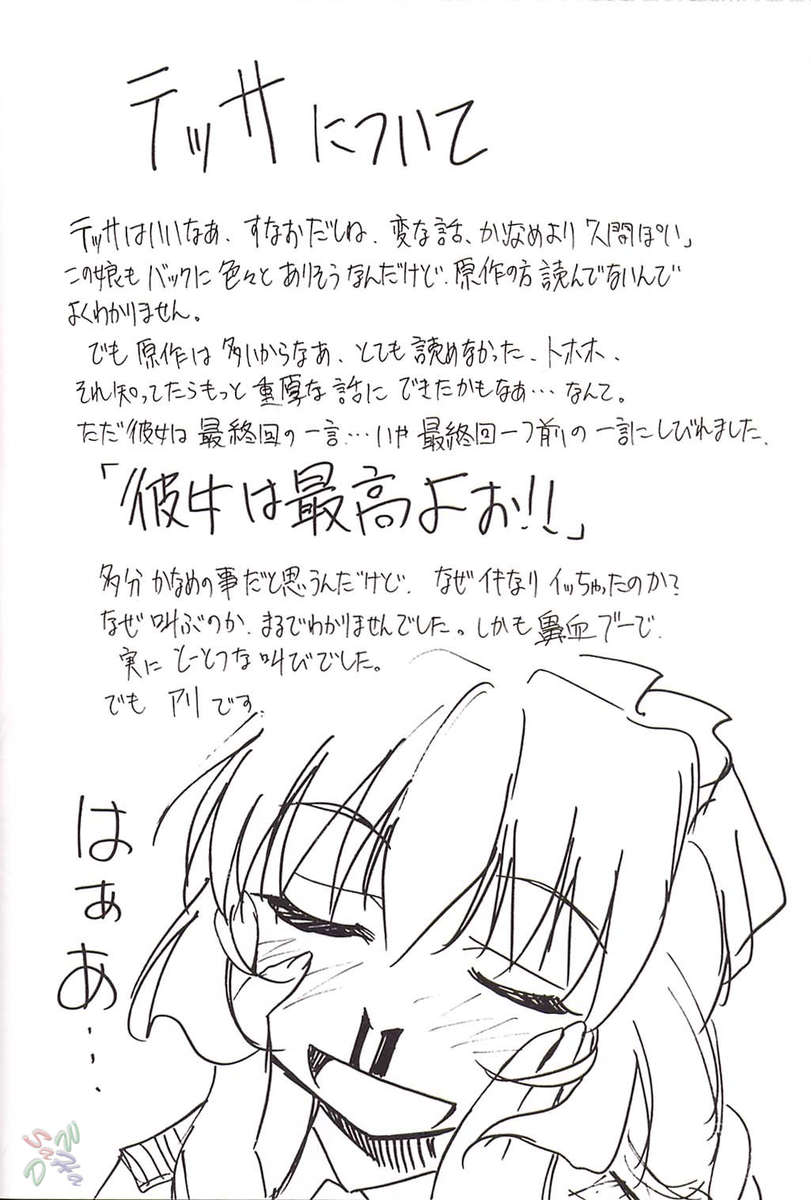 テッサについて
テッサはいいなあ、すなおだしね、変な話、かなめより人間ぽい」
この娘もバックに色々とありそうなんだけど、原作の方読んでないんで
よくわかりません。
でも原作は多いからなあ、とても読めなかった、トホホ、
それ知ってたらもっと重厚な話にできたかもなあ…なんて。
ただ彼女は最終回の一言…いや最終回一つ前の一言にしびれました、
「彼女は最高よぉ!!」
多分かなめの事だと思うんだけど、なぜイキなりイッちゃったのか?
なぜ叫ぶのか、まるでわかりませんでした。しかも鼻血ブーで、
実にとーとつな叫びでした。
でもアリです、
はぁあ…